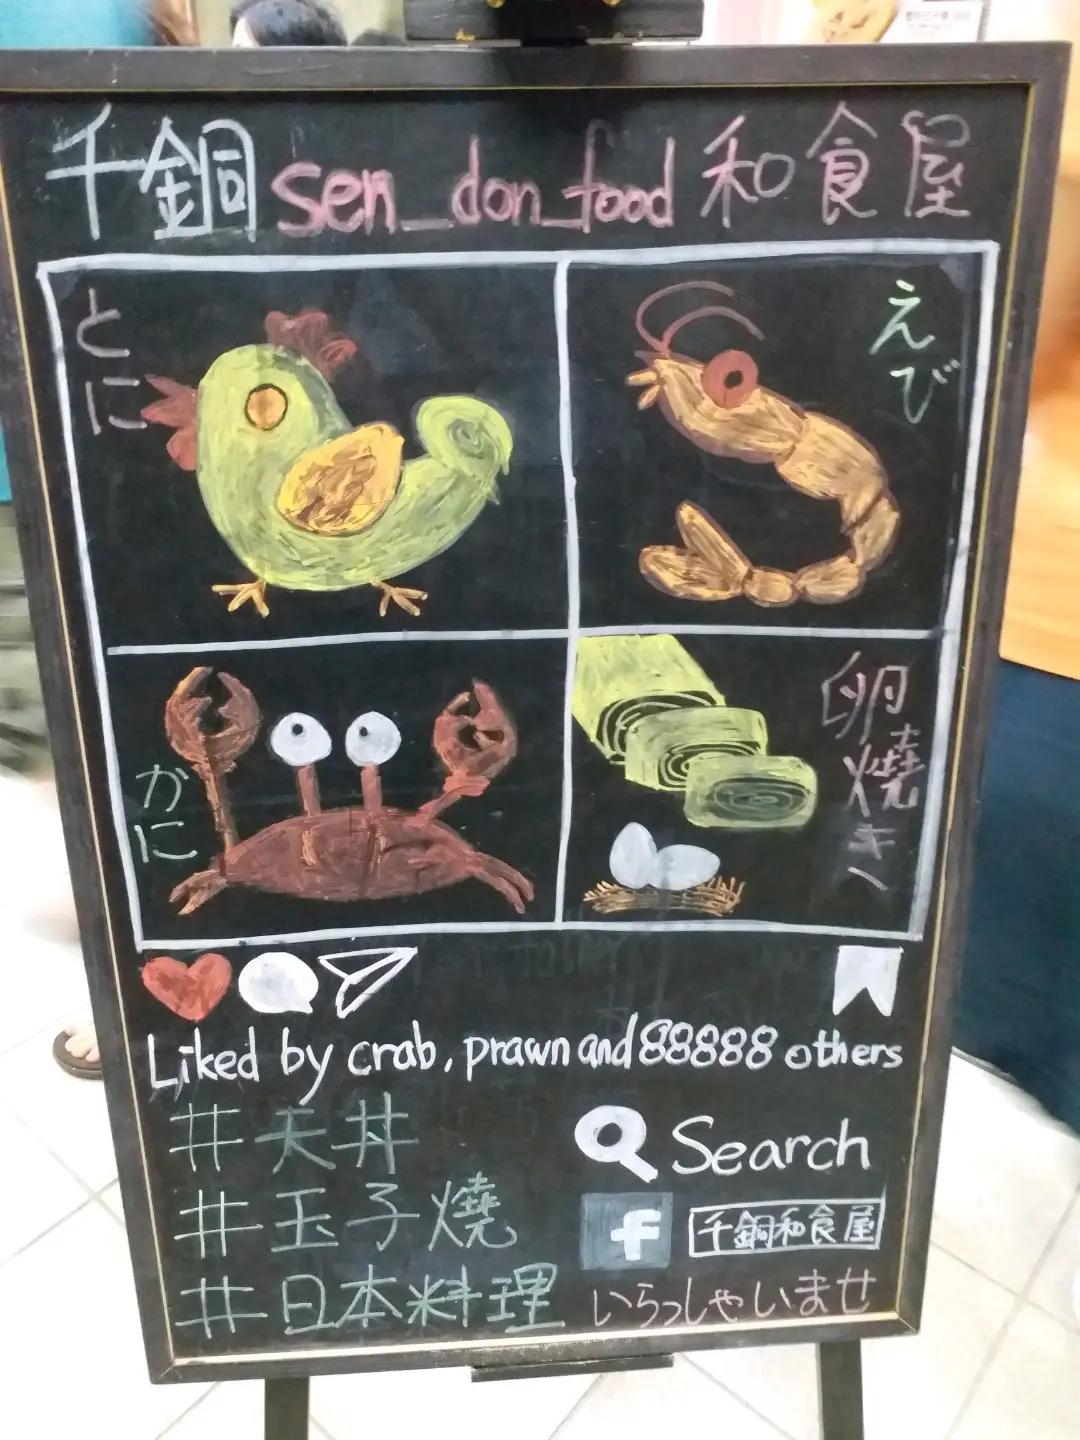 千銅 sen_don_food 和食屋
とに
えび
かに
卵焼き
Liked by crab, prawn and 88888 others
#天丼
#玉子燒
#日本料理
Search
f 千銅和食屋
いらっしゃいませ